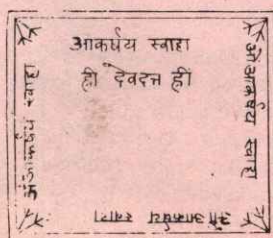 आकर्षय स्वाहा
ह्रीं देवदत्त ह्रीं
ओंआकर्षय स्वाहा
ओंआकर्षय स्वाहा
ओंआकर्षय स्वाहा